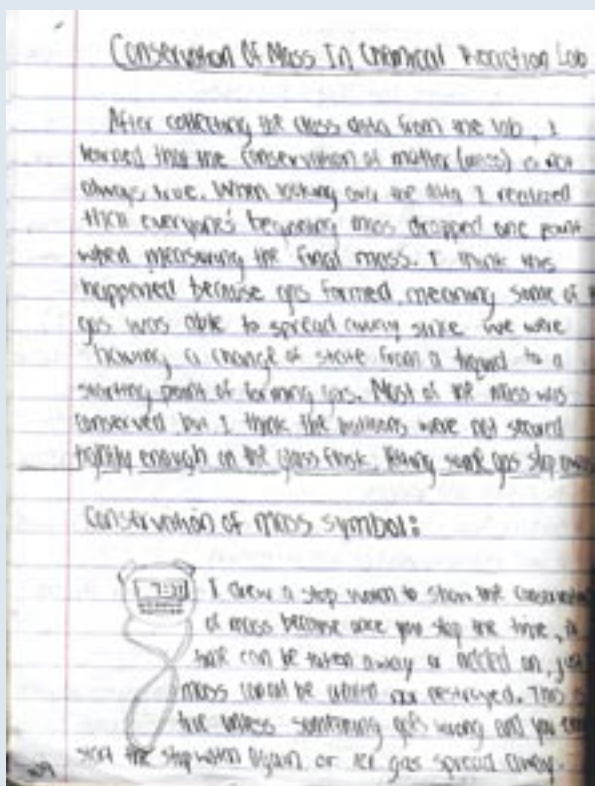 Conservation Of Mass In Chemical Reaction Lab
After collecting the class data from the lab, I
learned that the conservation of matter (mass) is not
always true. When looking over the data I realized
that everyone's beginning mass dropped one point
when measuring the final mass. I think this
happened because gas formed, meaning some of
gas was able to spread away since we were
having a change of state from a liquid to a
starting point of forming gas. Most of the mass was
conserved but I think the balloons were not secured
tightly enough on the glass flask, letting some gas slip
Conservation of mass symbol:
I drew a stop watch to show the
of mass because once you stop the time,
can be taken away or added on,
mass nor destroyed. This
true unless something goes wrong and you
start the stopwatch again or let gas spread away.